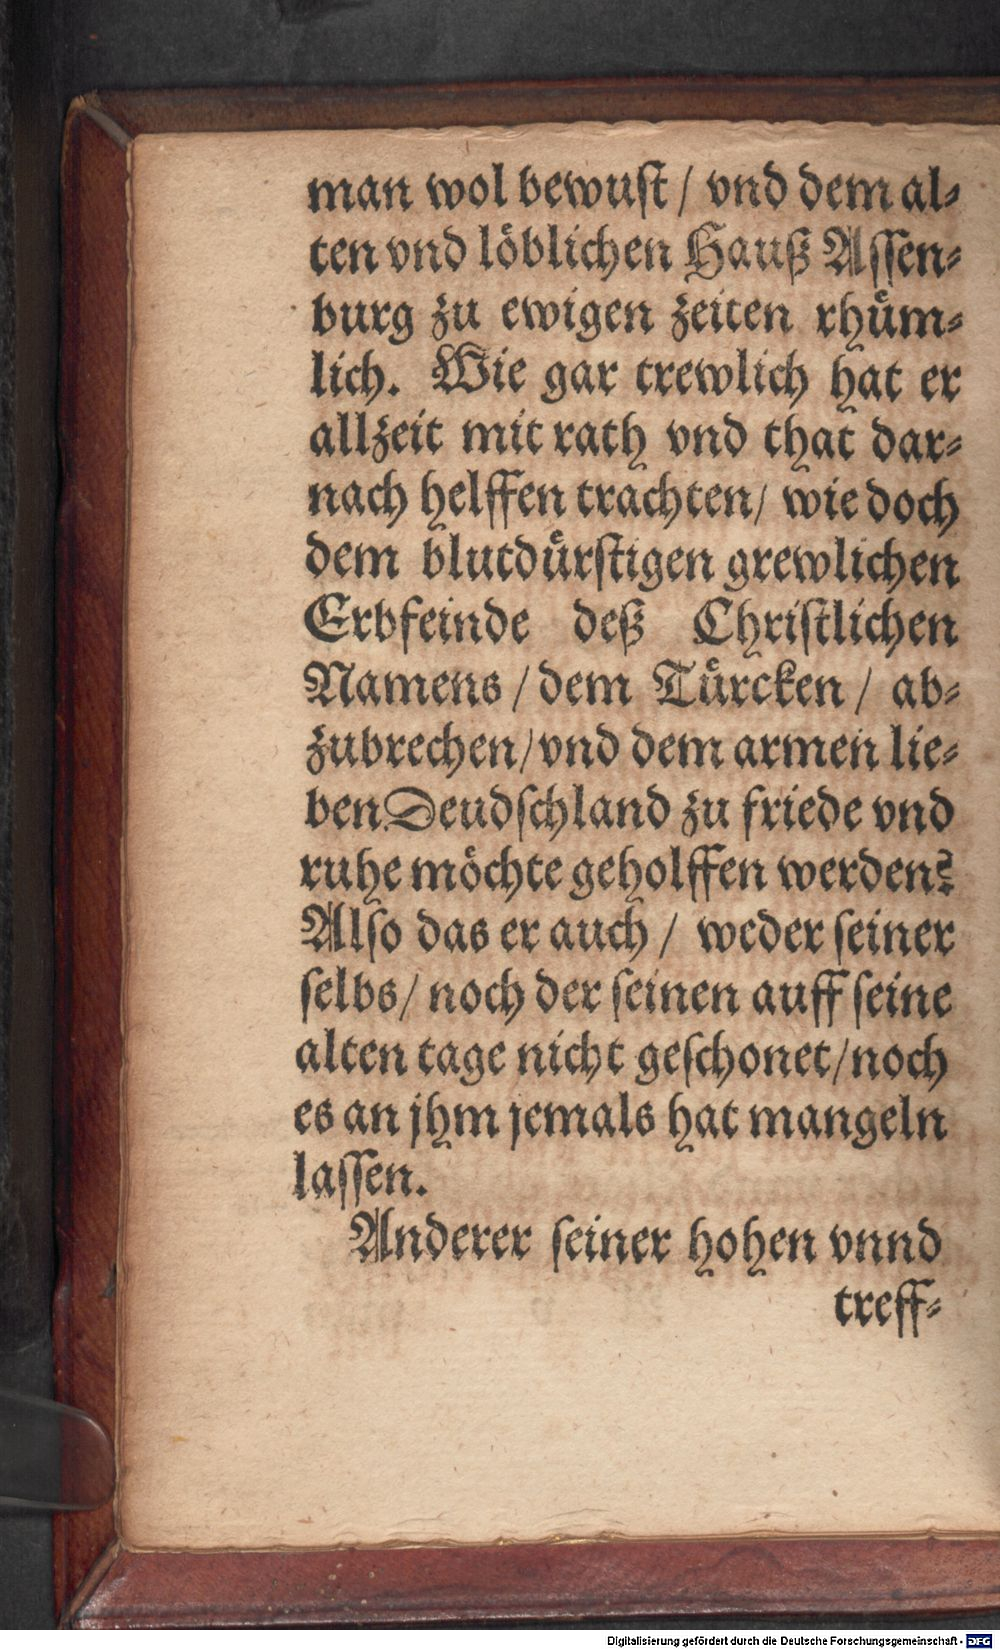 man wol bewuſt / vnd dem al⸗
ten vnd löblichen Hauß Aſſen⸗
burg zu ewigen zeiten rhüm⸗
lich. Wie gar trewlich hat er
allzeit mit rath vnd that dar⸗
nach helffen trachten / wie doch
dem blutdürſtigen grewlichen
Erbfeinde deß Chriſtlichen
Namens / dem Türcken / ab⸗
zubrechen / vnd dem armen lie⸗
ben Deudſchland zu friede vnd
ruhe möchte geholffen werden?
Alſo das er auch / weder ſeiner
ſelbs / noch der ſeinen auff ſeine
alten tage nicht geſchonet / noch
es an jhm jemals hat mangeln
laſſen.
Anderer ſeiner hohen vnnd
treff⸗
Digitalisierung gefördert durch die Deutsche Forschungsgemeinschaft - DFG